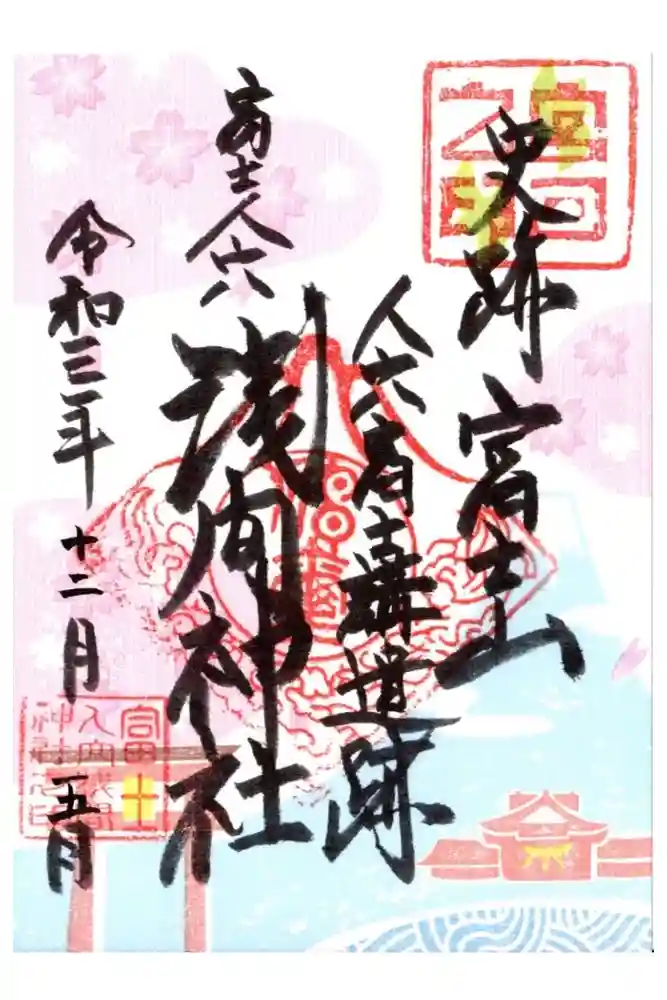 史跡 富士山
人穴富士講遺跡
富士人穴
浅間神社
令和三年 十二月 五日
富士
人穴浅間
神社之印